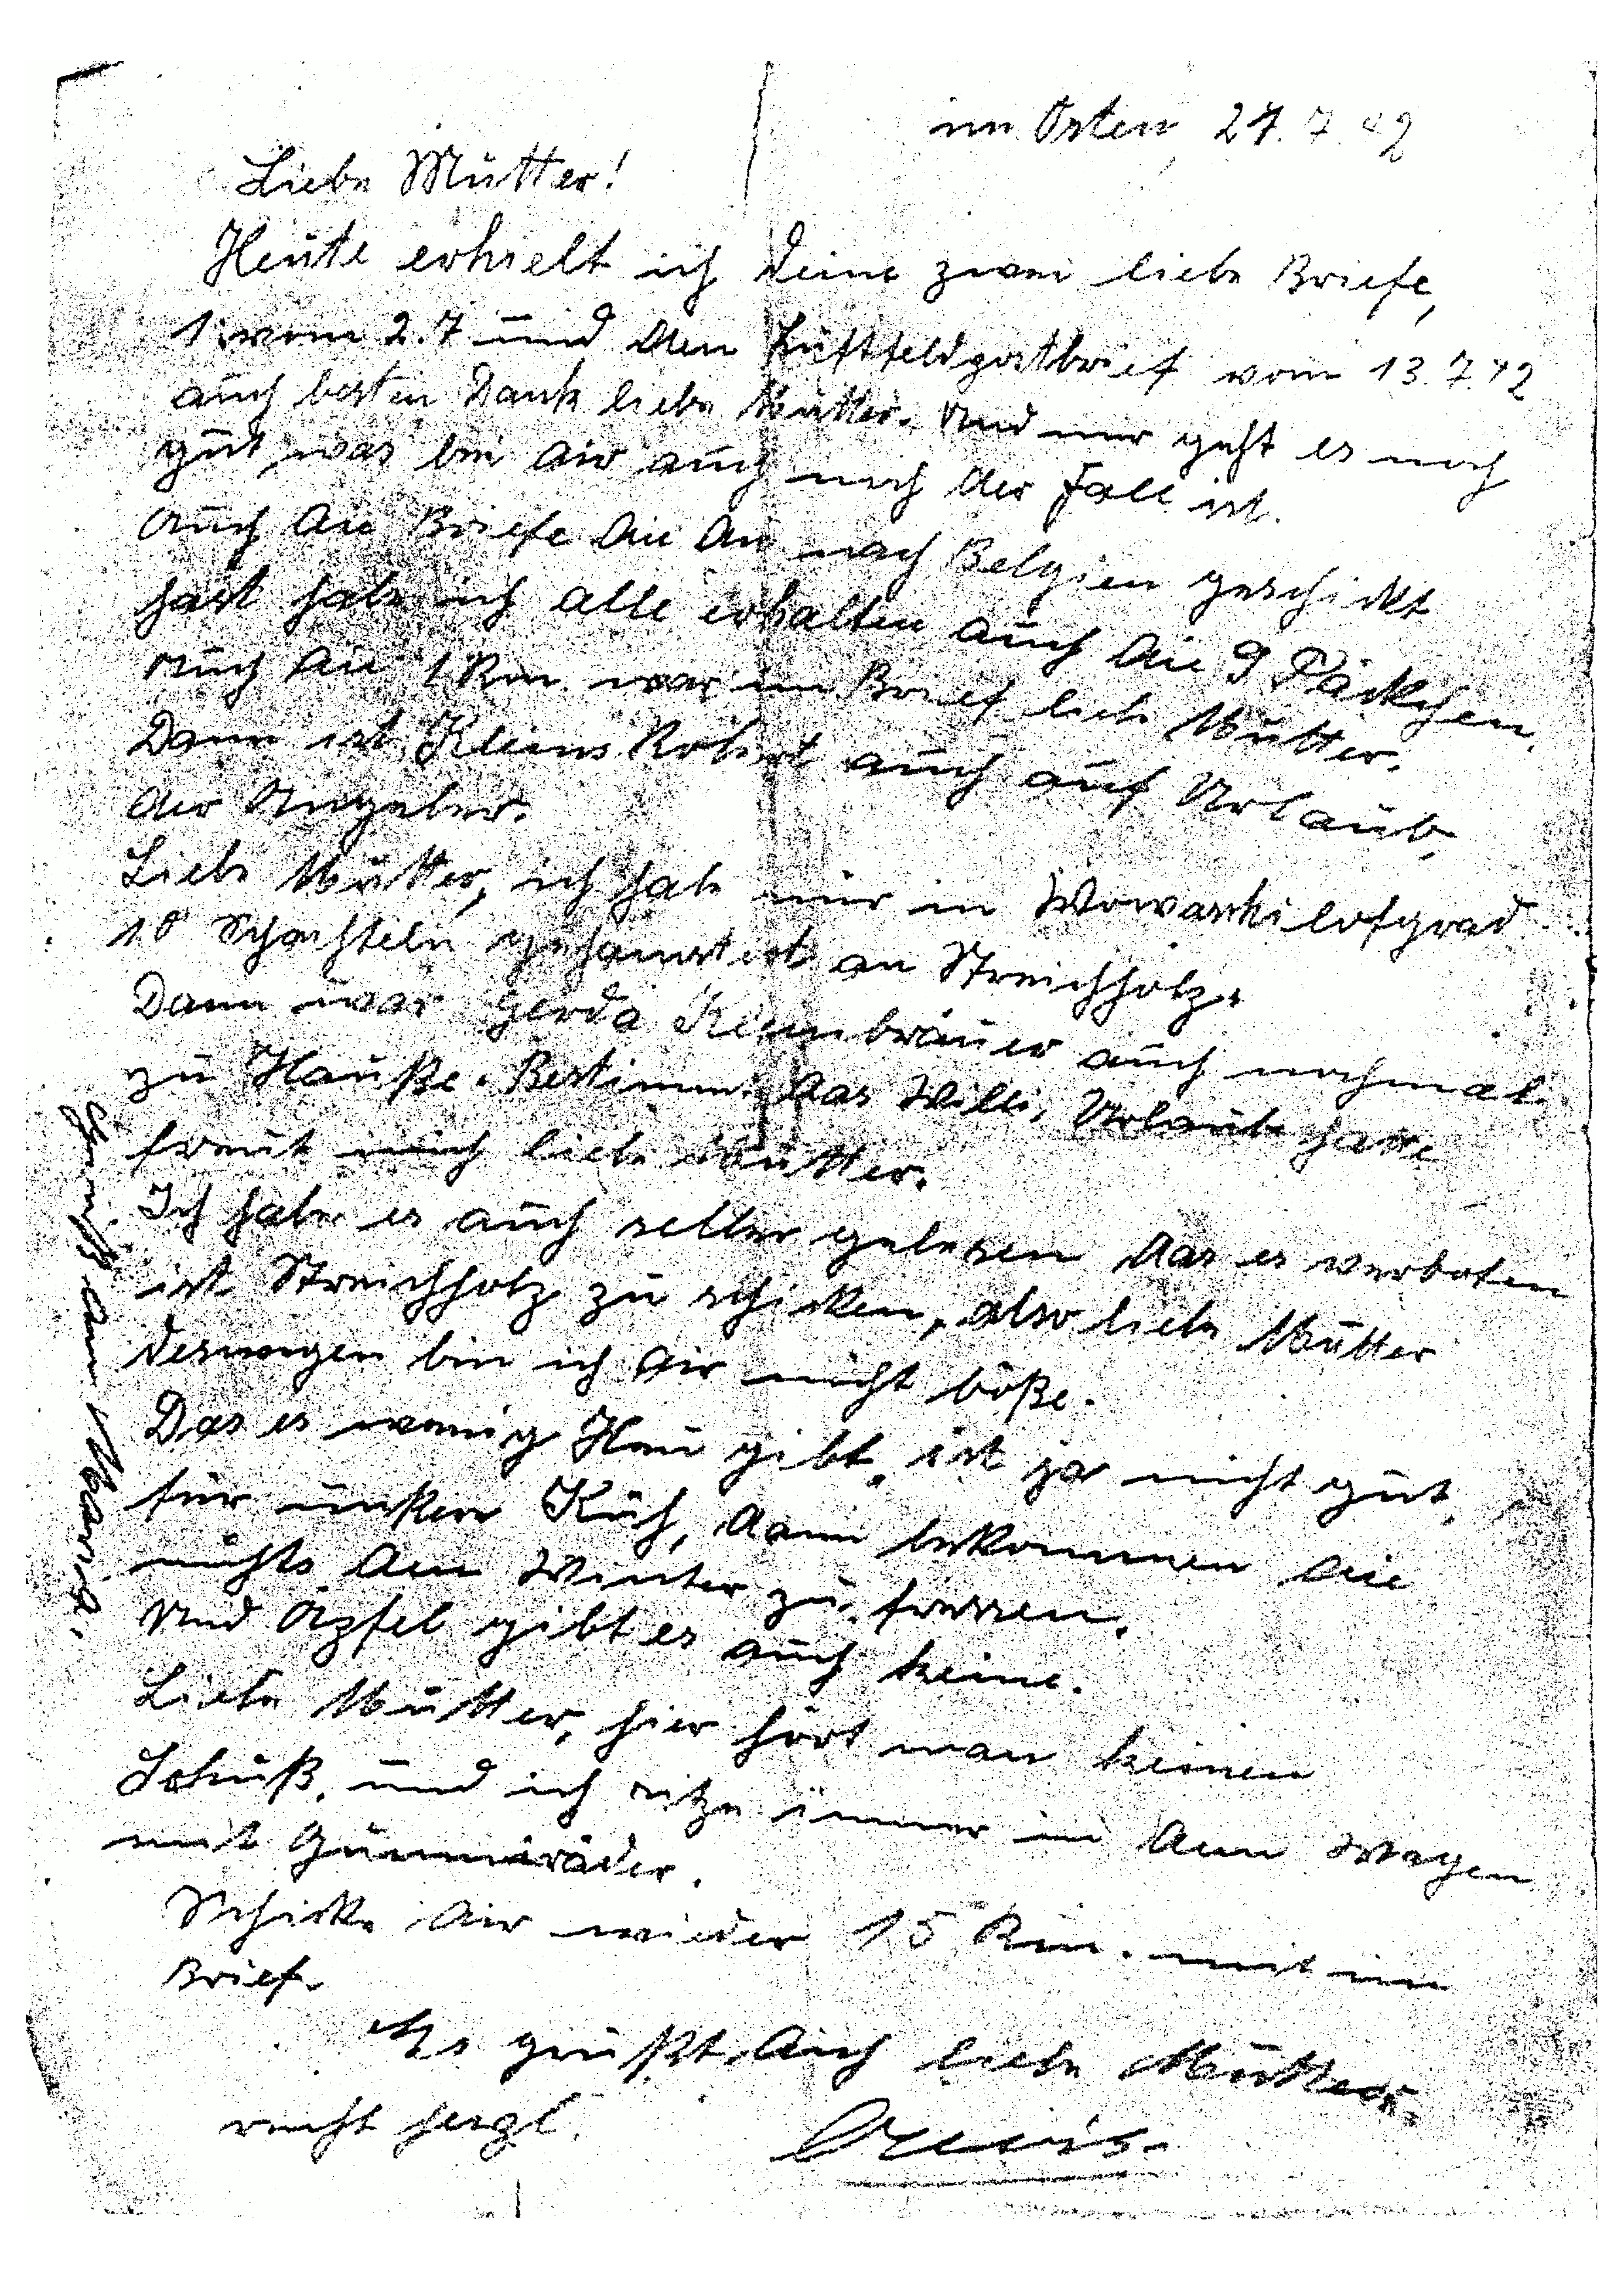 im Osten, 27.7.42
Liebe Mutter!
Heute erhielt ich Deine zwei liebe Briefe,
1. vom 2.7 und den Luftfeldpostbrief vom 13.7.42
auch besten Dank liebe Mutter. Und mir geht es noch
gut, was bei dir auch noch der Fall ist.
Auch die Briefe die du nach Belgien geschickt
hast habe ich alle erhalten auch die 9 Päckchen,
Auch die 1 Rm. war im Brief liebe Mutter.
Dann ist Kleins Robert auch auf Urlaub,
der Angeber.
Liebe Mutter, ich habe mir in
10 Schachteln gehamstert an Streichholz.
Dann war Gerda auch nochmal
zu Hauße. Bestimmt das Willi Urlaub hatte
freut mich liebe Mutter.
Ich habe es auch selber gelesen das es verboten
ist Streichholz zu schicken, also liebe Mutter
deswegen bin ich dir nicht böße.
Das es wenig Heu gibt, ist ja nicht gut,
für unßere Kuh, dann bekommen die
nichts den Winter zu fressen.
Und Äpfel gibt es auch keine.
Liebe Mutter, hier hört man keinen
Schuß, und ich sitze immer in den Wagen
mit Gummiräder.
Schicke dir wieder 15 Rm. mit im
Brief.
Es grüßt dich liebe Mutter.
recht herzl.
Alois.